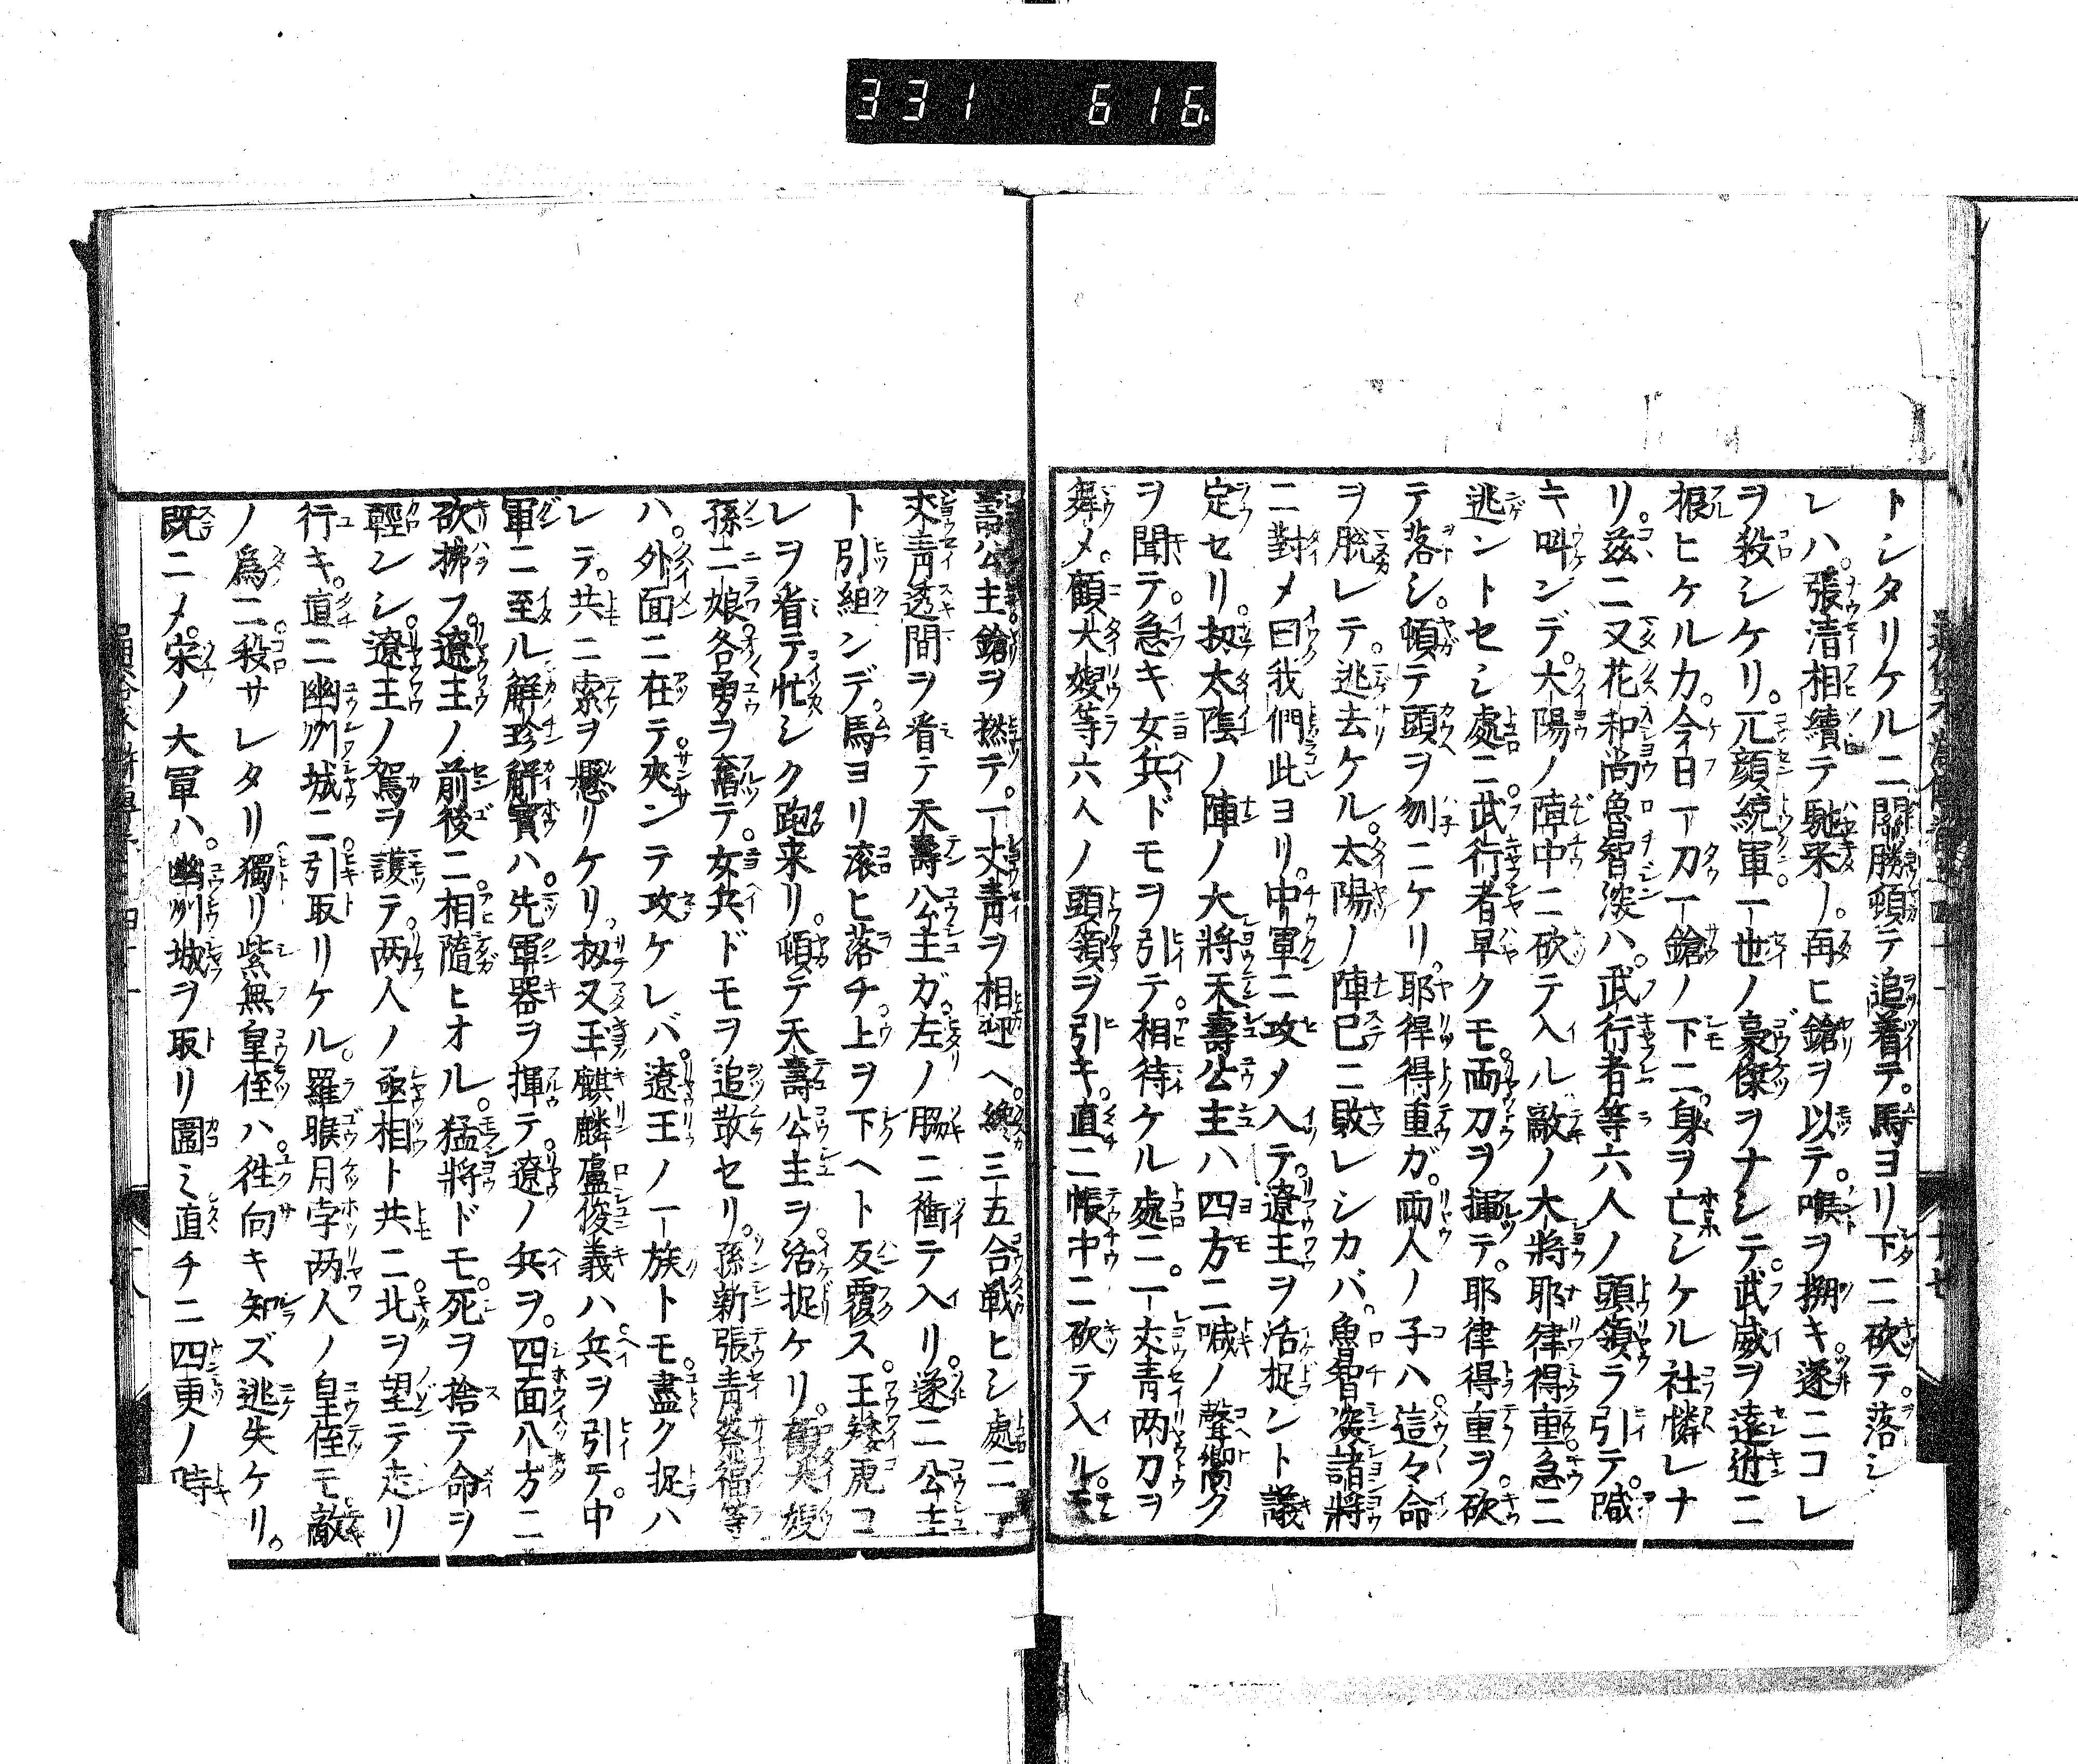 331 616
トシタリケルニ關勝頓テ追着テ。馬ヨリ下ニ砍テ。落シ
レハ。張清相續テ馳来ノ。再ヒ鎗ヲ以テ。喉ヲ搠キ。遂ニコレ
ヲ殺シケリ。兀顔統軍一世ノ豪傑ヲナシテ。武威ヲ遠近ニ
振ヒケルカ。今日一刀一鎗ノ下ニ身ヲ亡シケル社憐レナ
リ。茲ニ又花和尚魯智深ハ。武行者等六人ノ頭領ヲ引テ。喊
キ叫ンデ。大陽ノ陣中ニ砍テ入ル敵ノ大將耶律得重急ニ
逃ントセシ處ニ。武行者早クモ。両刀ヲ揮テ。耶律得重ヲ。砍
テ落シ。頓テ頭ヲ刎ニケリ。耶得得重ガ。両人ノ子ハ。這々命
ヲ脱レテ。逃去ケル。太陽ノ陣已ニ敗レシカバ。魯智深諸將
ニ對メ曰我們此ヨリ。中軍ニ攻メ入テ。遼王ヲ活捉ント議
定セリ。扨太陰ノ陣ノ大將天壽公主ハ四方ニ喊ノ聲響ク
ヲ聞テ。急キ女兵ドモヲ引テ。相待ケル處ニ。一丈青両刀ヲ
舞メ。顧大嫂等六人ノ頭領ヲ引キ。直ニ帳中ニ砍テ入ル。天
壽公主鎗ヲ撚テ。一丈青ヲ相迎ヘ。纔三五合戦ヒシ處ニ一
丈青透間ヲ看テ天壽公主ガ。左ノ脇ニ衝テ入リ。遂ニ公主
ト引組ンデ。馬ヨリ滚ヒ落チ。上ヲ下ヘト反覆ス。王矮虎コ
レヲ看テ忙シク跑来リ。頓テ天壽公主ヲ。活捉ケリ。顧大嫂
孫二娘。各勇ヲ奮テ。女兵ドモヲ追散セリ。孫新張青蔡福等
ハ。外面ニ在テ。夾ンテ攻ケレバ。遼王ノ一族トモ。盡ク捉ハ
レテ。共ニ索ヲ懸リケリ。扨又玉麒麟盧俊義ハ兵ヲ引テ。中
軍ニ至ル解珍解寳ハ。先軍器ヲ揮テ。遼ノ兵ヲ。四面八方ニ
砍拂フ。遼主ノ前後ニ相隨ヒオル。猛將ドモ。死ヲ捨テ命ヲ
輕ンシ。遼主ノ駕ヲ護テ。両人ノ丞相ト共ニ。北ヲ望テ走リ
行キ。直ニ幽州城ニ引取リケル。羅睺月孛両人ノ皇侄モ。敵
ノ爲ニ殺サレタリ獨リ紫無皇侄ハ。徃向キ知ズ逃失ケリ。
既ニメ。宋ノ大軍ハ。幽州城ヲ取リ圍ミ直チニ四更ノ時